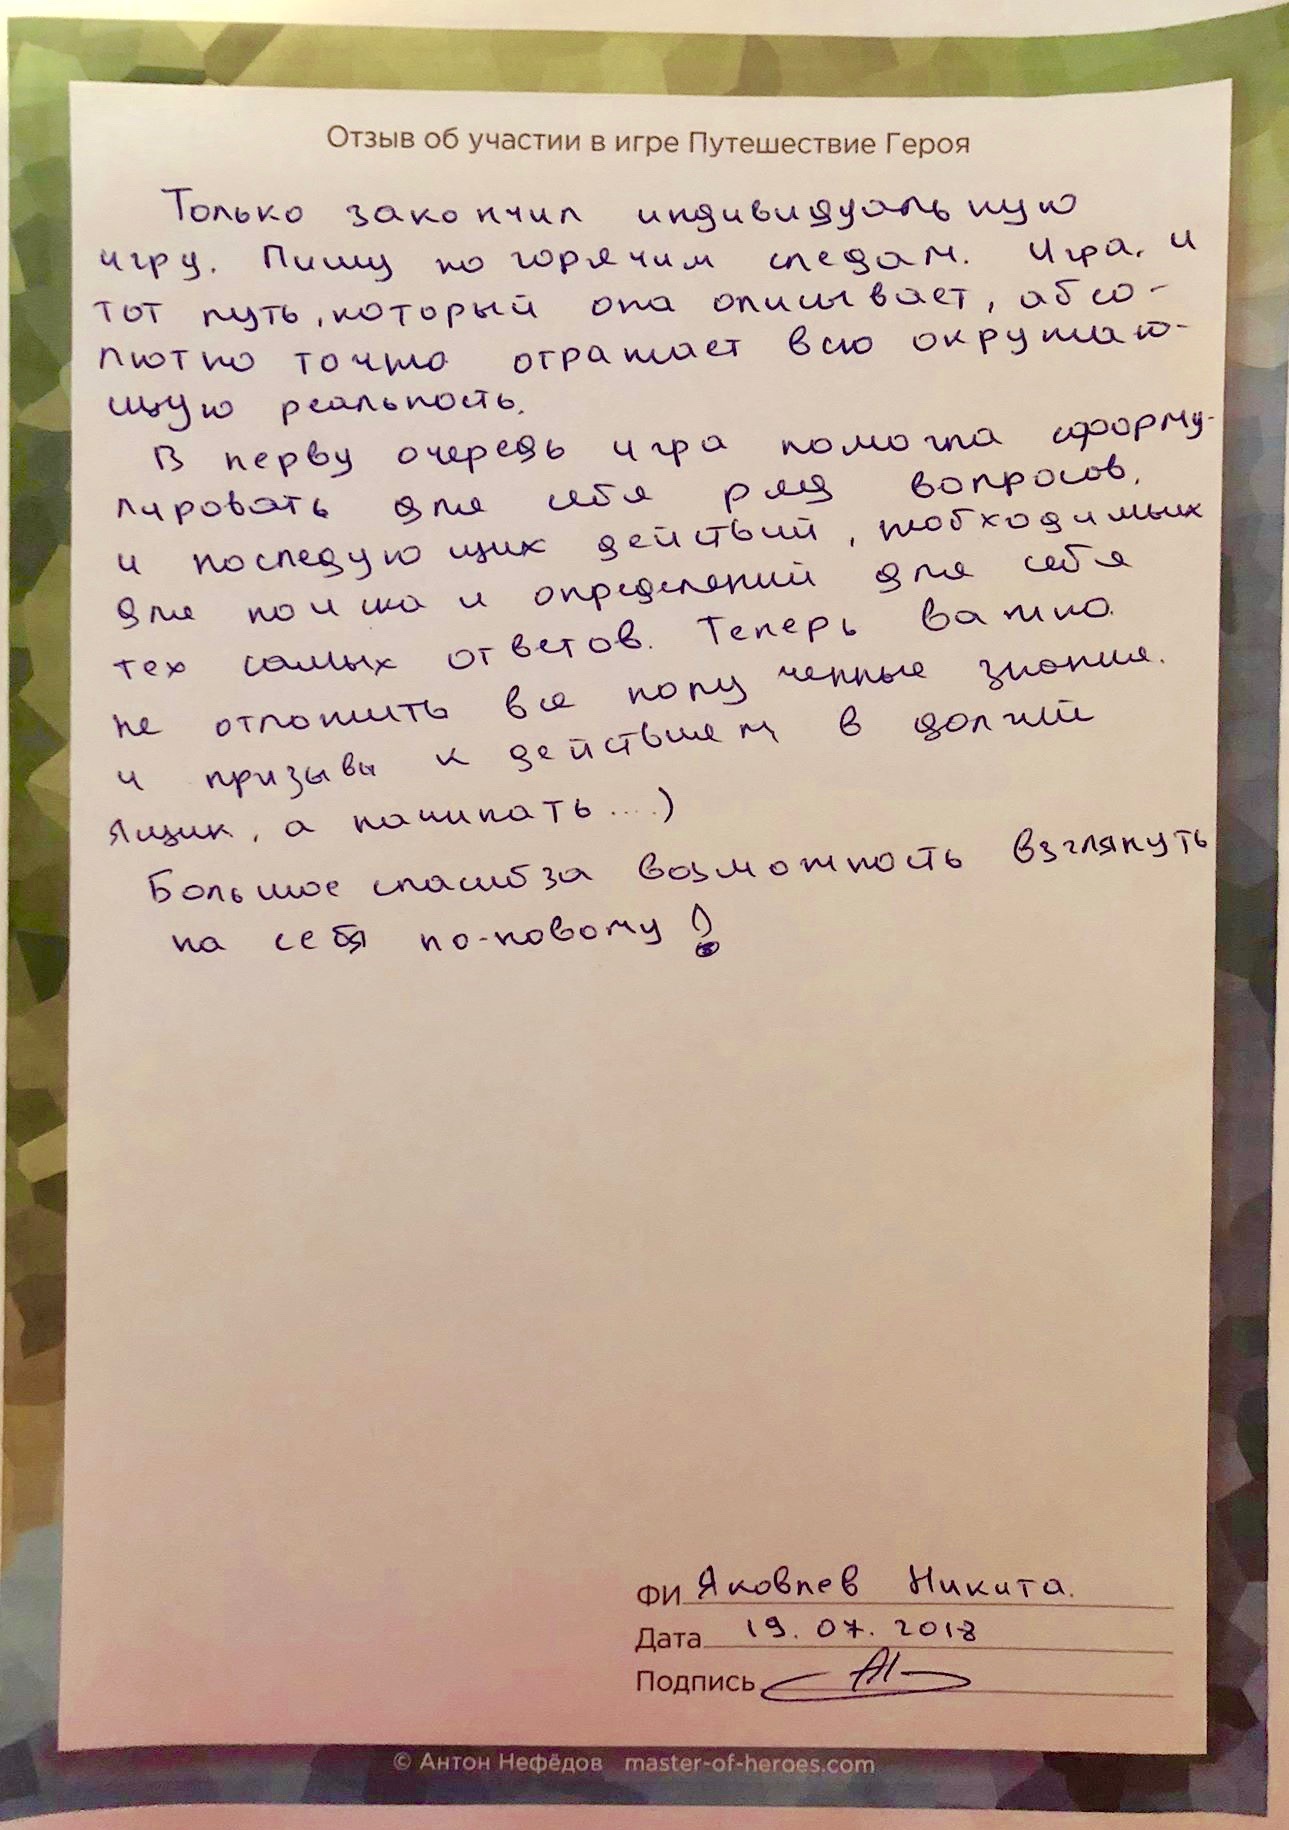 Отзыв об участии в игре Путешествие Героя
Только закончил индивидуальную
игру. Пишу по горячим следам. Игра, и
тот путь, который она описывает, абсо-
лютно точно отражает всю окружаю-
щую реальность.
В перву очередь игра помогла сформу-
лировать для себя ряд вопросов,
и последующих действий, необходимых
для поиска и определений для себя
тех самых ответов. Теперь важно
не отложить все полученные знания
и призывы к действием в долгий
ящик, а начинать....)
Большое спасиб за возможность взглянуть
на себя по-новому!
ФИ Яковлев Никита.
Дата 19.07.2018
Подпись
© Антон Нефёдов master-of-heroes.com